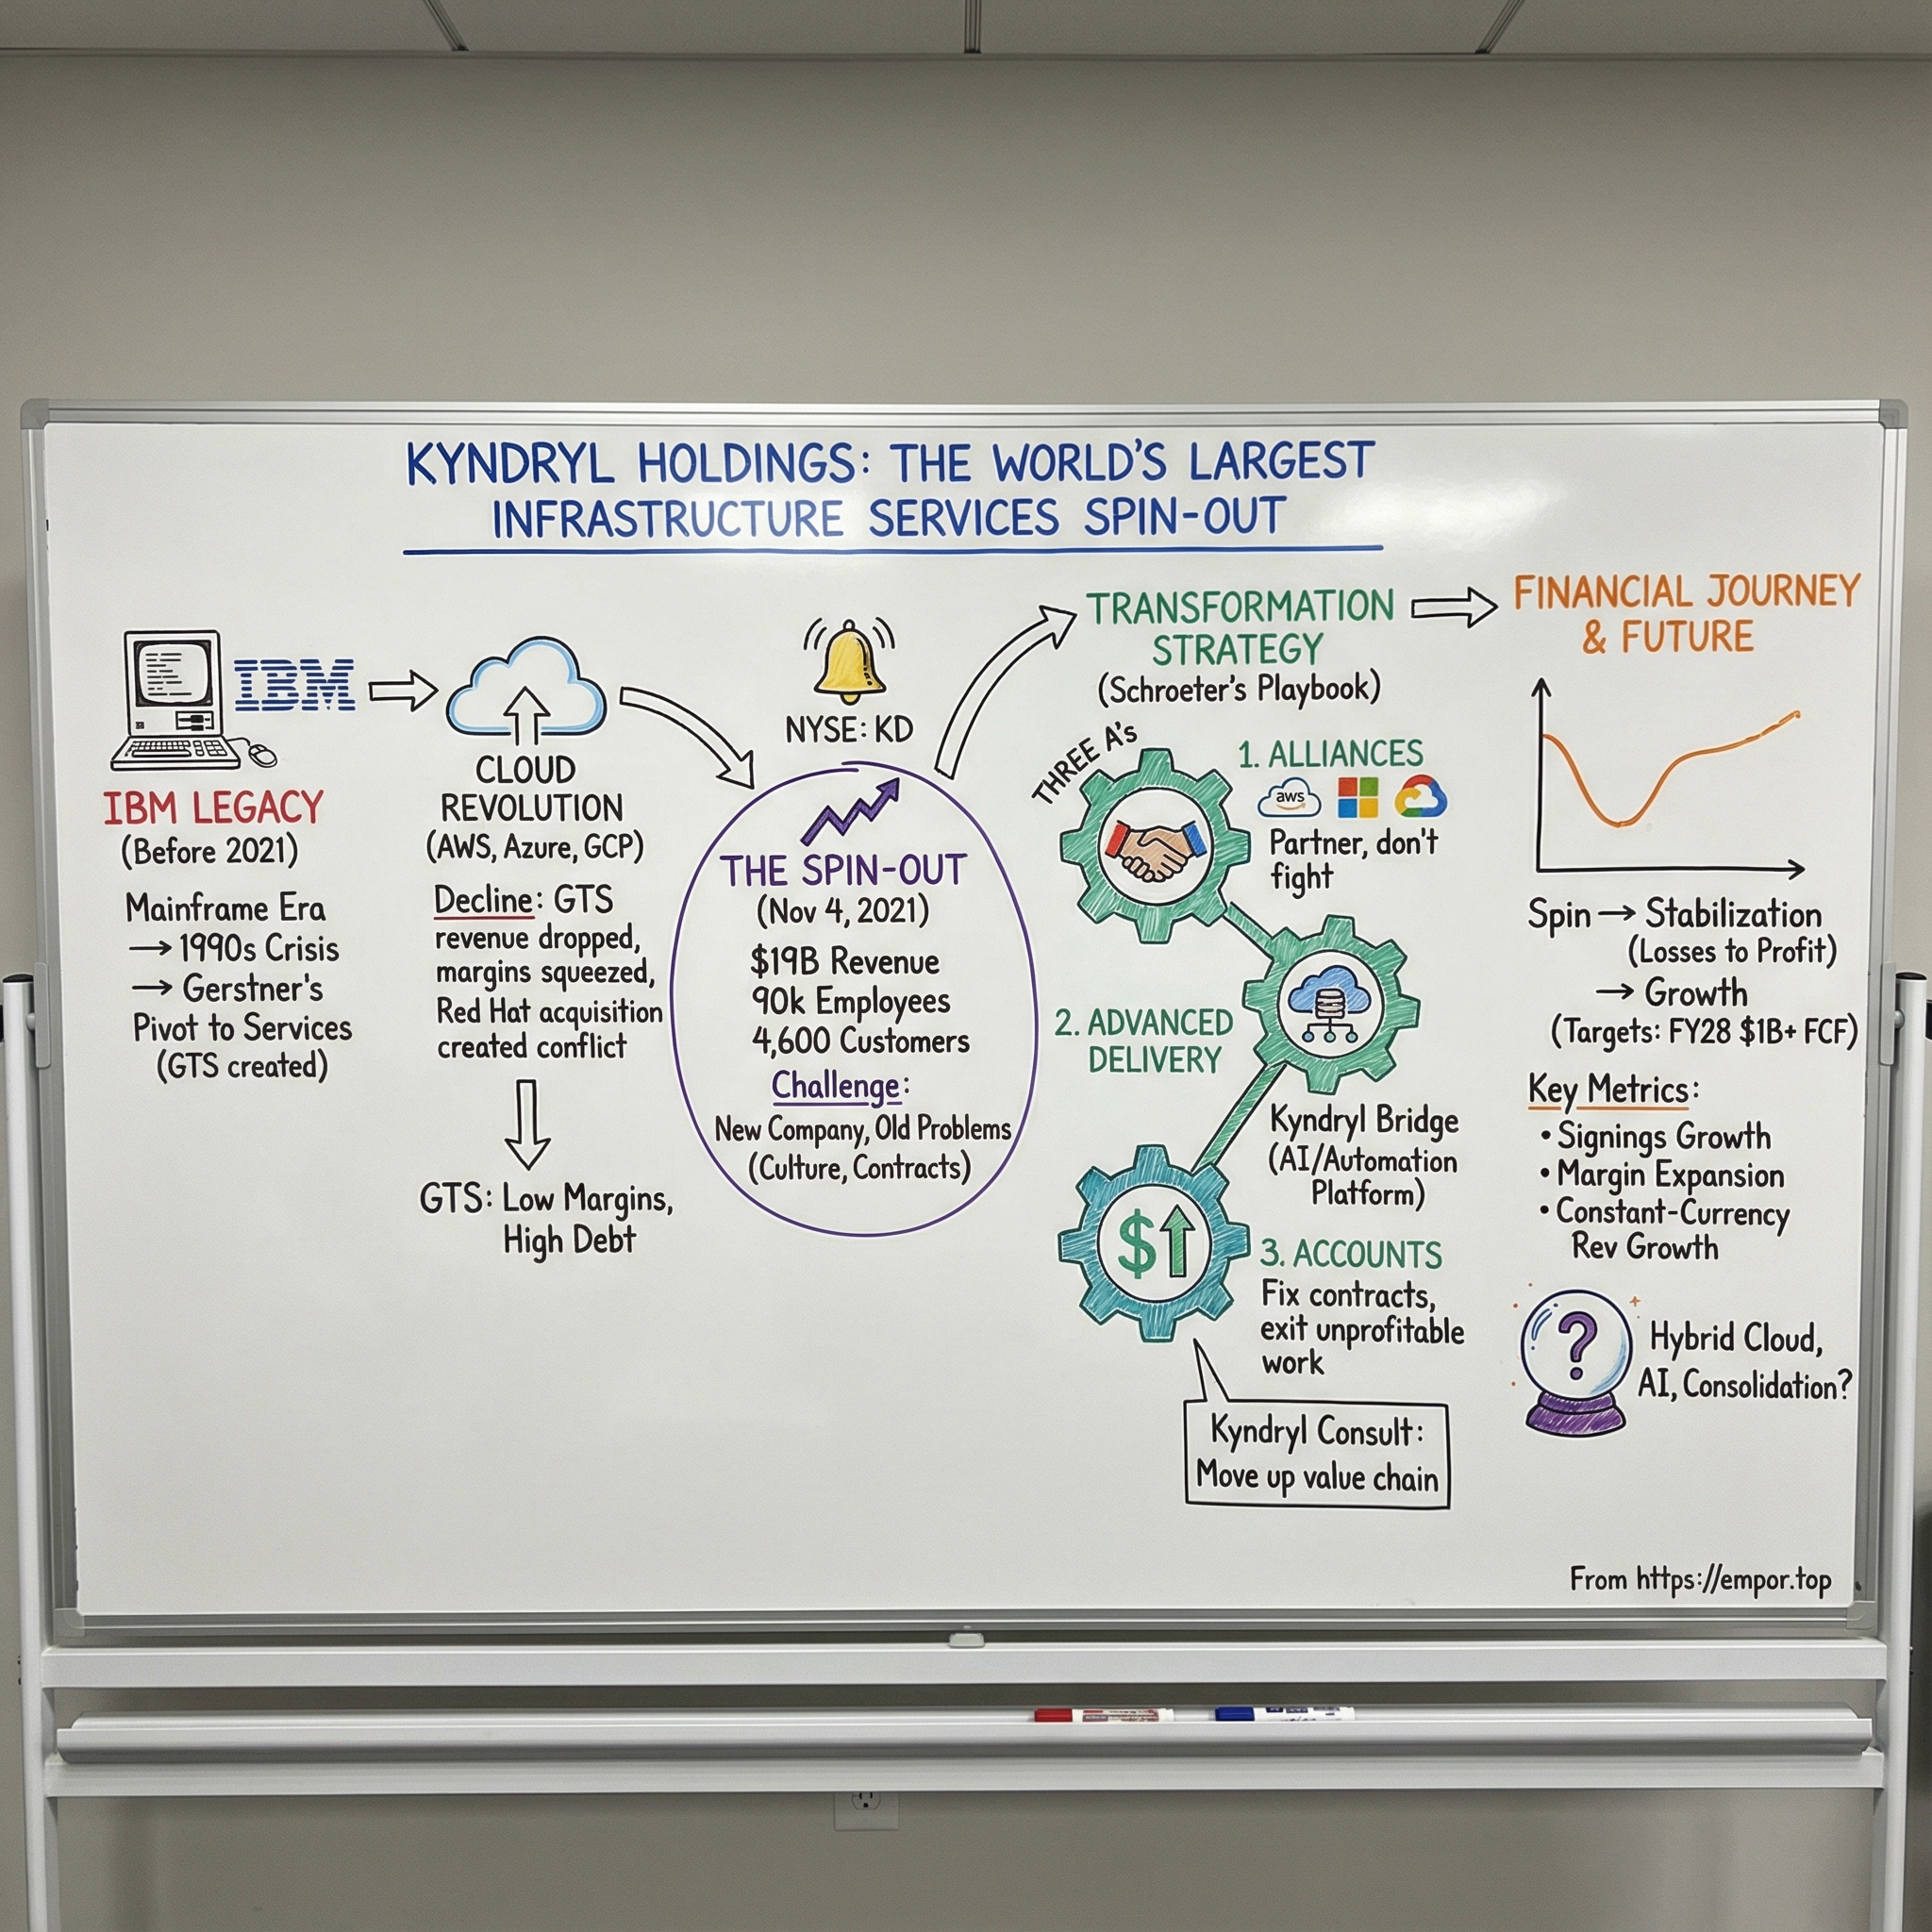 KYNDRYL HOLDINGS: THE WORLD'S LARGEST
INFRASTRUCTURE SERVICES SPIN-OUT
IBM
IBM LEGACY
(Before 2021)
Mainframe Era
→ 1990s Crisis
→ Gerstner's
Pivot to Services
(GTS created)
CLOUD
REVOLUTION
(AWS, Azure, GCP)
Decline: GTS
revenue dropped,
margins squeezed,
Red Hat acquisition
created conflict
GTS: Low Margins,
High Debt
NYSE: KD
THE SPIN-OUT
(Nov 4, 2021)
$19B Revenue
90k Employees
4,600 Customers
Challenge:
New Company, Old Problems
(Culture, Contracts)
TRANSFORMATION
STRATEGY
(Schroeter's Playbook)
THREE A's
1. ALLIANCES
aws
Partner, don't
fight
2. ADVANCED
DELIVERY
Kyndryl Bridge
(AI/Automation
Platform)
$
3. ACCOUNTS
Fix contracts,
exit unprofitable
work
Kyndryl Consult:
Move up value chain
FINANCIAL JOURNEY
& FUTURE
Spin → Stabilization
(Losses to Profit)
→ Growth
(Targets: FY28 $1B+ FCF)
Key Metrics:
• Signings Growth
• Margin Expansion
• Constant-Currency
Rev Growth
?
Hybrid Cloud,
AI, Consolidation?
From https://empor.top